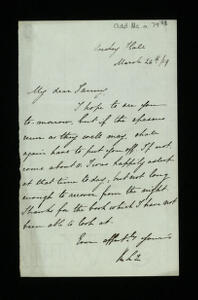 March 26th /79
My dear Fanny
I hope to see you
to-morrow, but if the spasms
run as they well may shall
again have to put you off. If not,
come about 3. I was happily asleep
at that time to-day, but not long
enough to recover from the night.
Thanks for the book which I have not
been able to look at.
Ever affectly yours